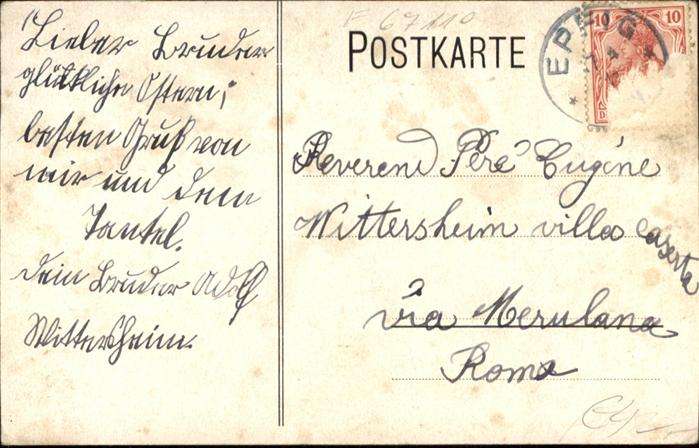 Lieber Bruder
glückliche Ostern,
besten Gruß von
mir und dem
Tantel.
Dein Bruder Adolf
Wittersheim.
POSTKARTE
10 10
EP G
Reverend Père Eugène
Wittersheim villa caserta
via Merulana
Roma